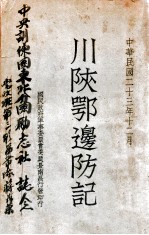 中華民國二十三年十二月
川陝鄂邊防記
國民政府軍事委員會委員長南昌行營印行
中央訓練團東北勵志社 誌念